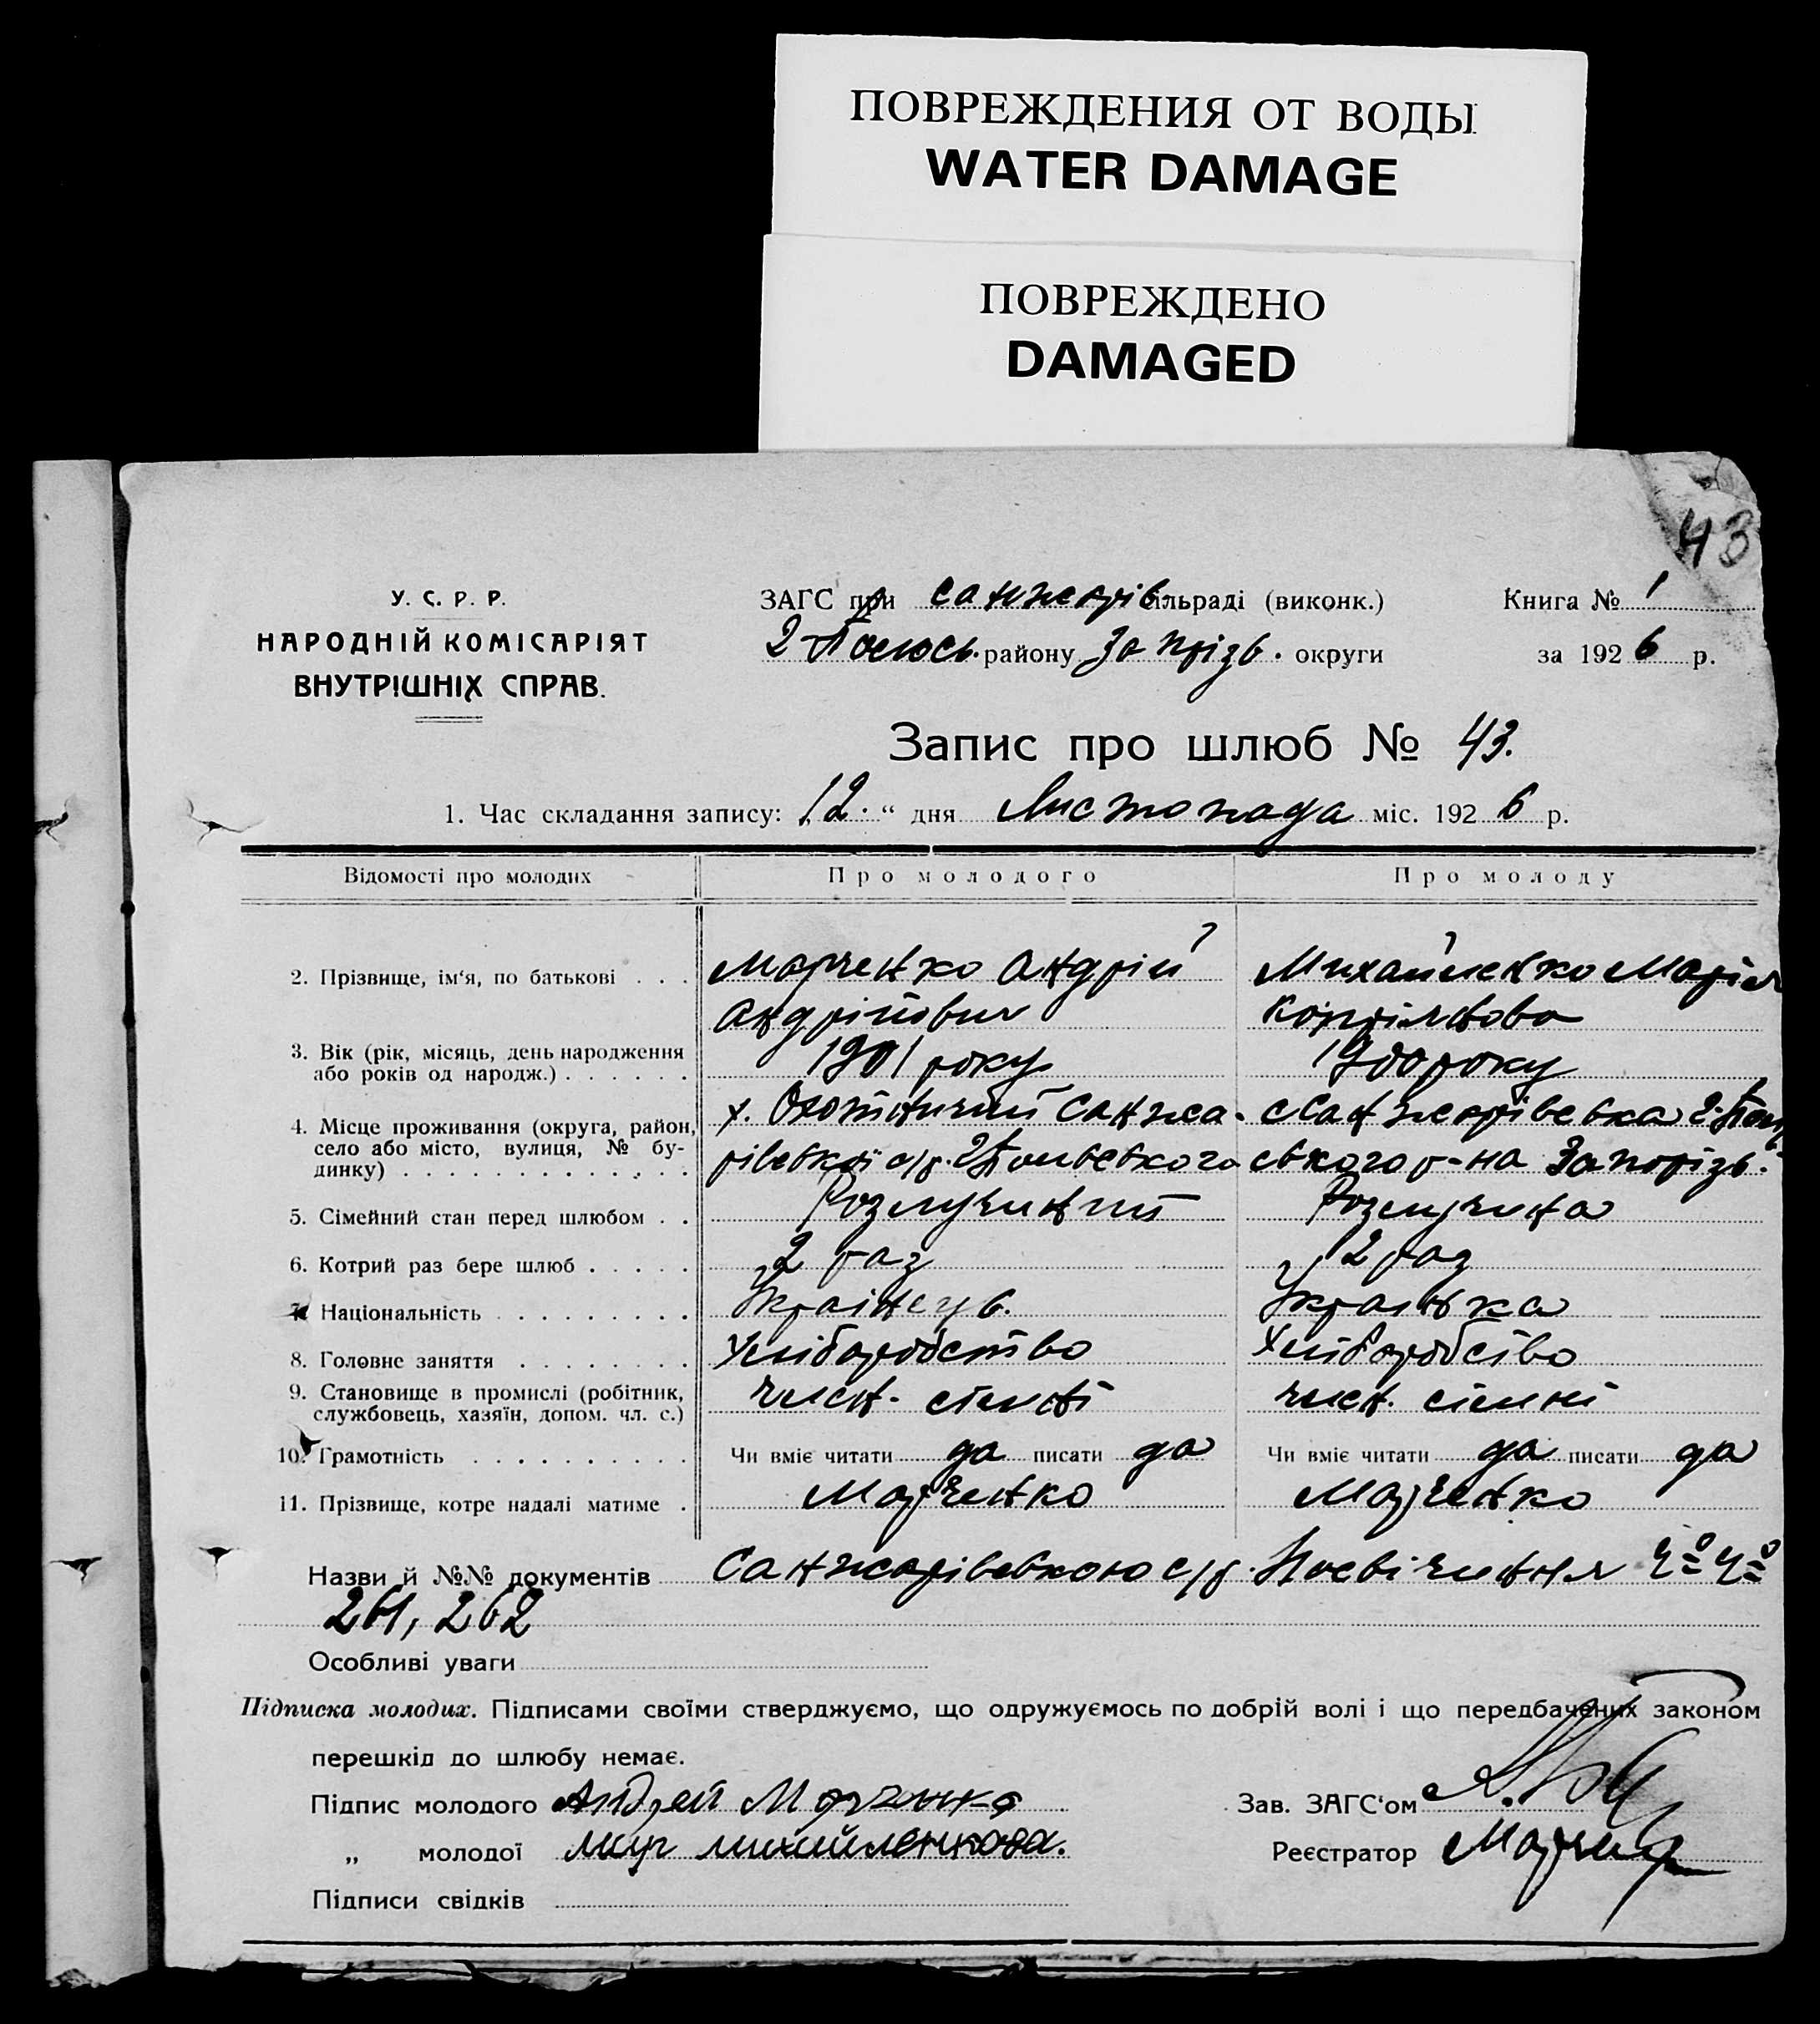 ПОВРЕЖДЕНИЯ ОТ ВОДЫ
WATER DAMAGE
ПОВРЕЖДЕНО
DAMAGED
43
У. С. Р. Р.
НАРОДНІЙ КОМІСАРІЯТ
ВНУТРІШНІХ СПРАВ.
ЗАГС при Санжарів. сільраді (виконк.) Книга № 1
району Запорізь. округи за 1926 р.
Запис про шлюб № 43.
1. Час складання запису: „12.“ дня Листопада міс. 1926 р.
Відомості про молодих Про молодого Про молоду
2. Прізвище, ім'я, по батькові . . . Марченко Андрій Михайленко Марія
Андрійович
3. Вік (рік, місяць, день народження 1901 року 1900 року
або років од народж.) . . . . . .
4. Місце проживання (округа, район, х. Охотничий Санжа- с Санжарівська
село або місто, вулиця, № бу- рівської с/р. ського р-на Запорізь.
динку) . . . . . . . . . . . . .
5. Сімейний стан перед шлюбом . . Розлучиний Розлучина
6. Котрий раз бере шлюб . . . . . 2 раз 2 раз
7. Національність . . . . . . . . . Українець. Українка
8. Головне заняття . . . . . . . . Хліборобство Хліборобство
9. Становище в промислі (робітник, член. сімні член. сімні
службовець, хазяїн, допом. чл. с.)
10. Грамотність . . . . . . . . . . Чи вміє читати да писати да Чи вміє читати да писати да
11. Прізвище, котре надалі матиме . Марченко Марченко
Назви й №№ документів Санжарівською с/р. Посвічиння
261, 262
Особливі уваги
Підписка молодих. Підписами своїми стверджуємо, що одружуємось по добрій волі і що передбачених законом
перешкід до шлюбу немає.
Підпис молодого Андрей Марченко Зав. ЗАГС'ом
„ молодої Мар Михайленкова. Реєстратор
Підписи свідків